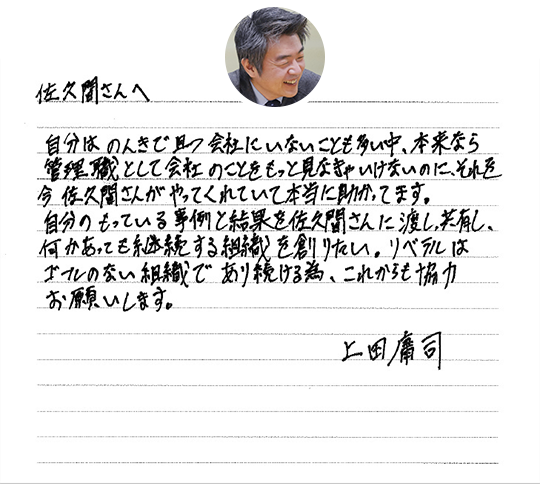 佐久間さんへ
自分はのんきで且つ会社にいないことも多い中、本来なら
管理職として会社のことをもっと見なきゃいけないのに、それを
今佐久間さんがやってくれていて本当に助かってます。
自分のもっている事例と結果を佐久間さんに渡し、共有し、
何かあっても継続する組織を創りたい。リベラルは
ゴールのない組織であり続ける為、これからも協力
お願いします。
上田庸司